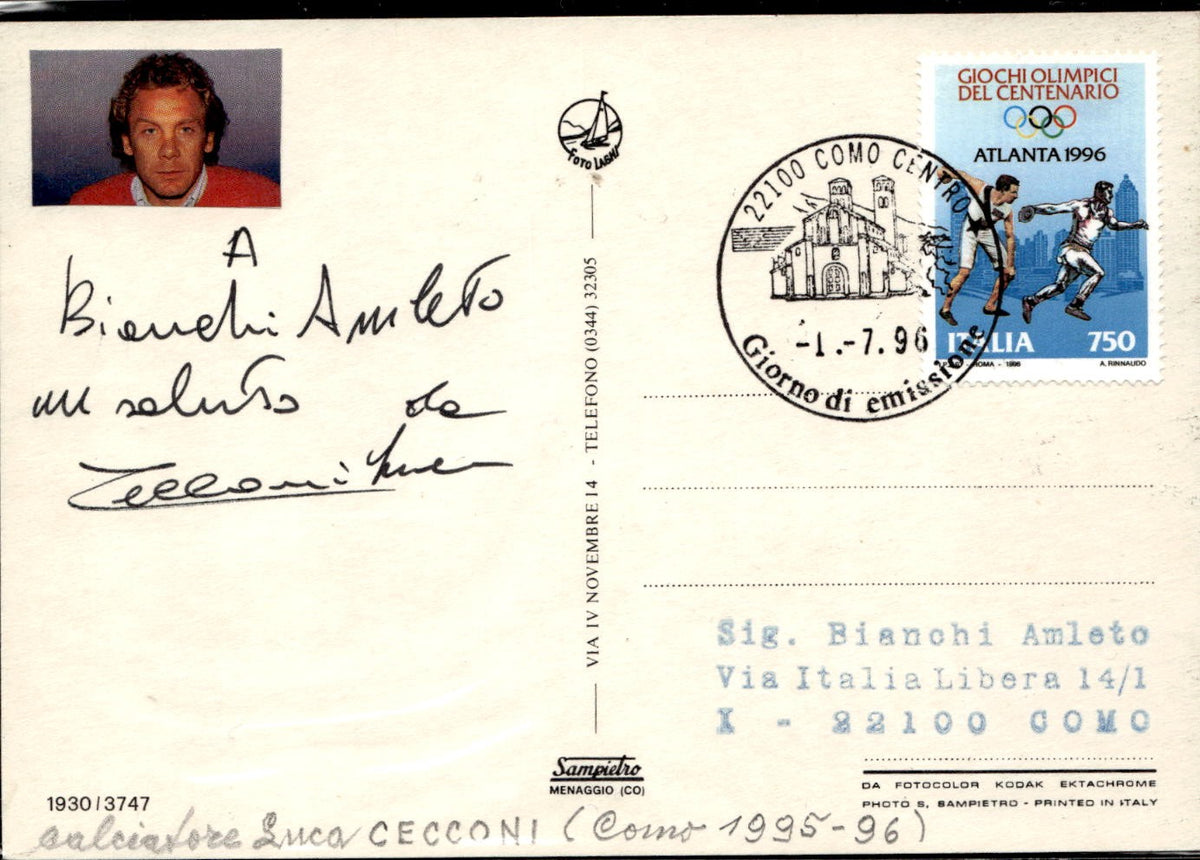 A
Bianchi Amleto
un saluto da
Cecconi Luca
1930/3747
calciatore Luca CECCONI (Como 1995-96)
FOTO LAGHI
VIA IV NOVEMBRE 14 - TELEFONO (0344) 32305
Sampietro
MENAGGIO (CO)
22100 COMO CENTRO
-1.-7.96
Giorno di emissione
GIOCHI OLIMPICI
DEL CENTENARIO
ATLANTA 1996
ITALIA 750
ROMA - 1996 A. RINNAUDO
Sig. Bianchi Amleto
Via Italia Libera 14/1
I - 22100 COMO
DA FOTOCOLOR KODAK EKTACHROME
PHOTO S. SAMPIETRO - PRINTED IN ITALY